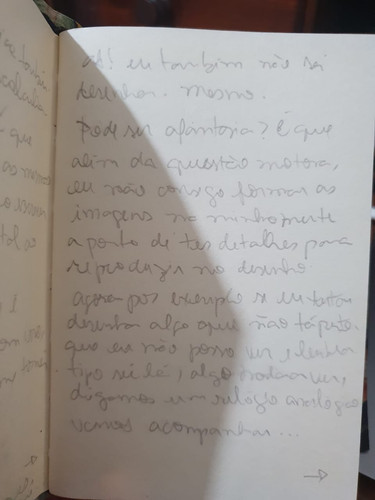 ah! eu também não sei
desenhar. mesmo.
Pode ser afantasia? É que
além da questão motora,
eu não consigo formar as
imagens na minha mente
a ponto de ter detalhes para
reproduzir no desenho.
agora por exemplo se eu tentar
desenhar algo que não tá perto
que eu não posso ver e lembrar
tipo sei lá, algo
digamos um relógio analógico
vamos acompanhar...